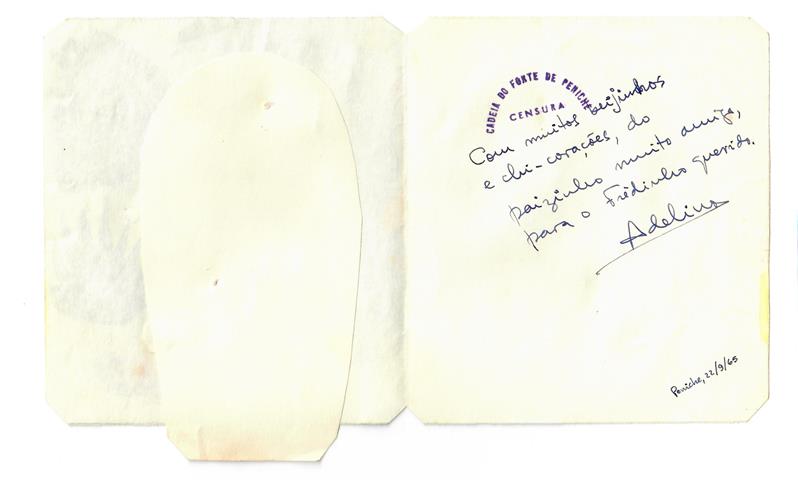 CADEIA DO FORTE DE PENICHE
CENSURA
Com muitos beijinhos
e chi-corações, do
paizinho muito amigo,
para o Frèdinho querido.
Adelino
Peniche, 22/9/65